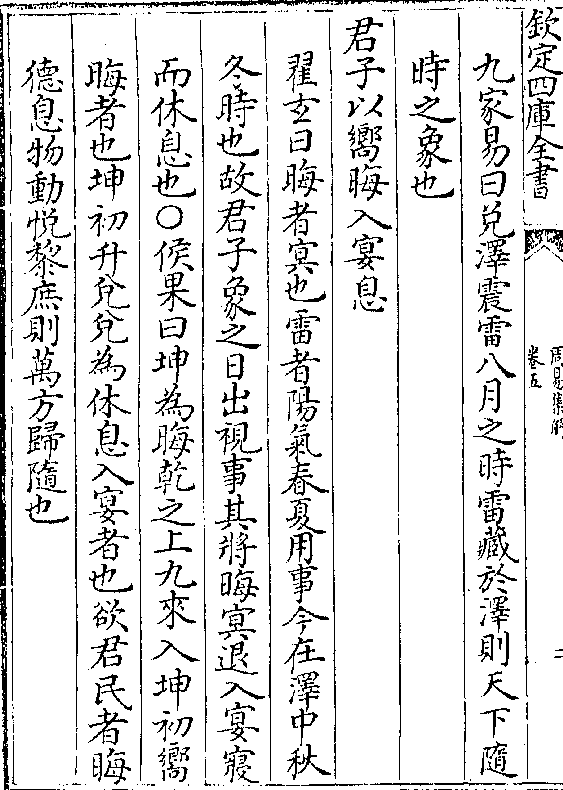 欽定四庫全書
周易集解
卷五
二
九家易曰兌澤震雷八月之時雷藏於澤則天下隨
時之象也
君子以嚮晦入宴息
翟玄曰晦者冥也雷者陽氣春夏用事今在澤中秋
冬時也故君子象之日出視事其將晦冥退入宴寢
而休息也○侯果曰坤為晦乾之上九來入坤初嚮
晦者也坤初升兌兌為休息入宴者也欲君民者晦
德息物動悅黎庶則萬方歸隨也